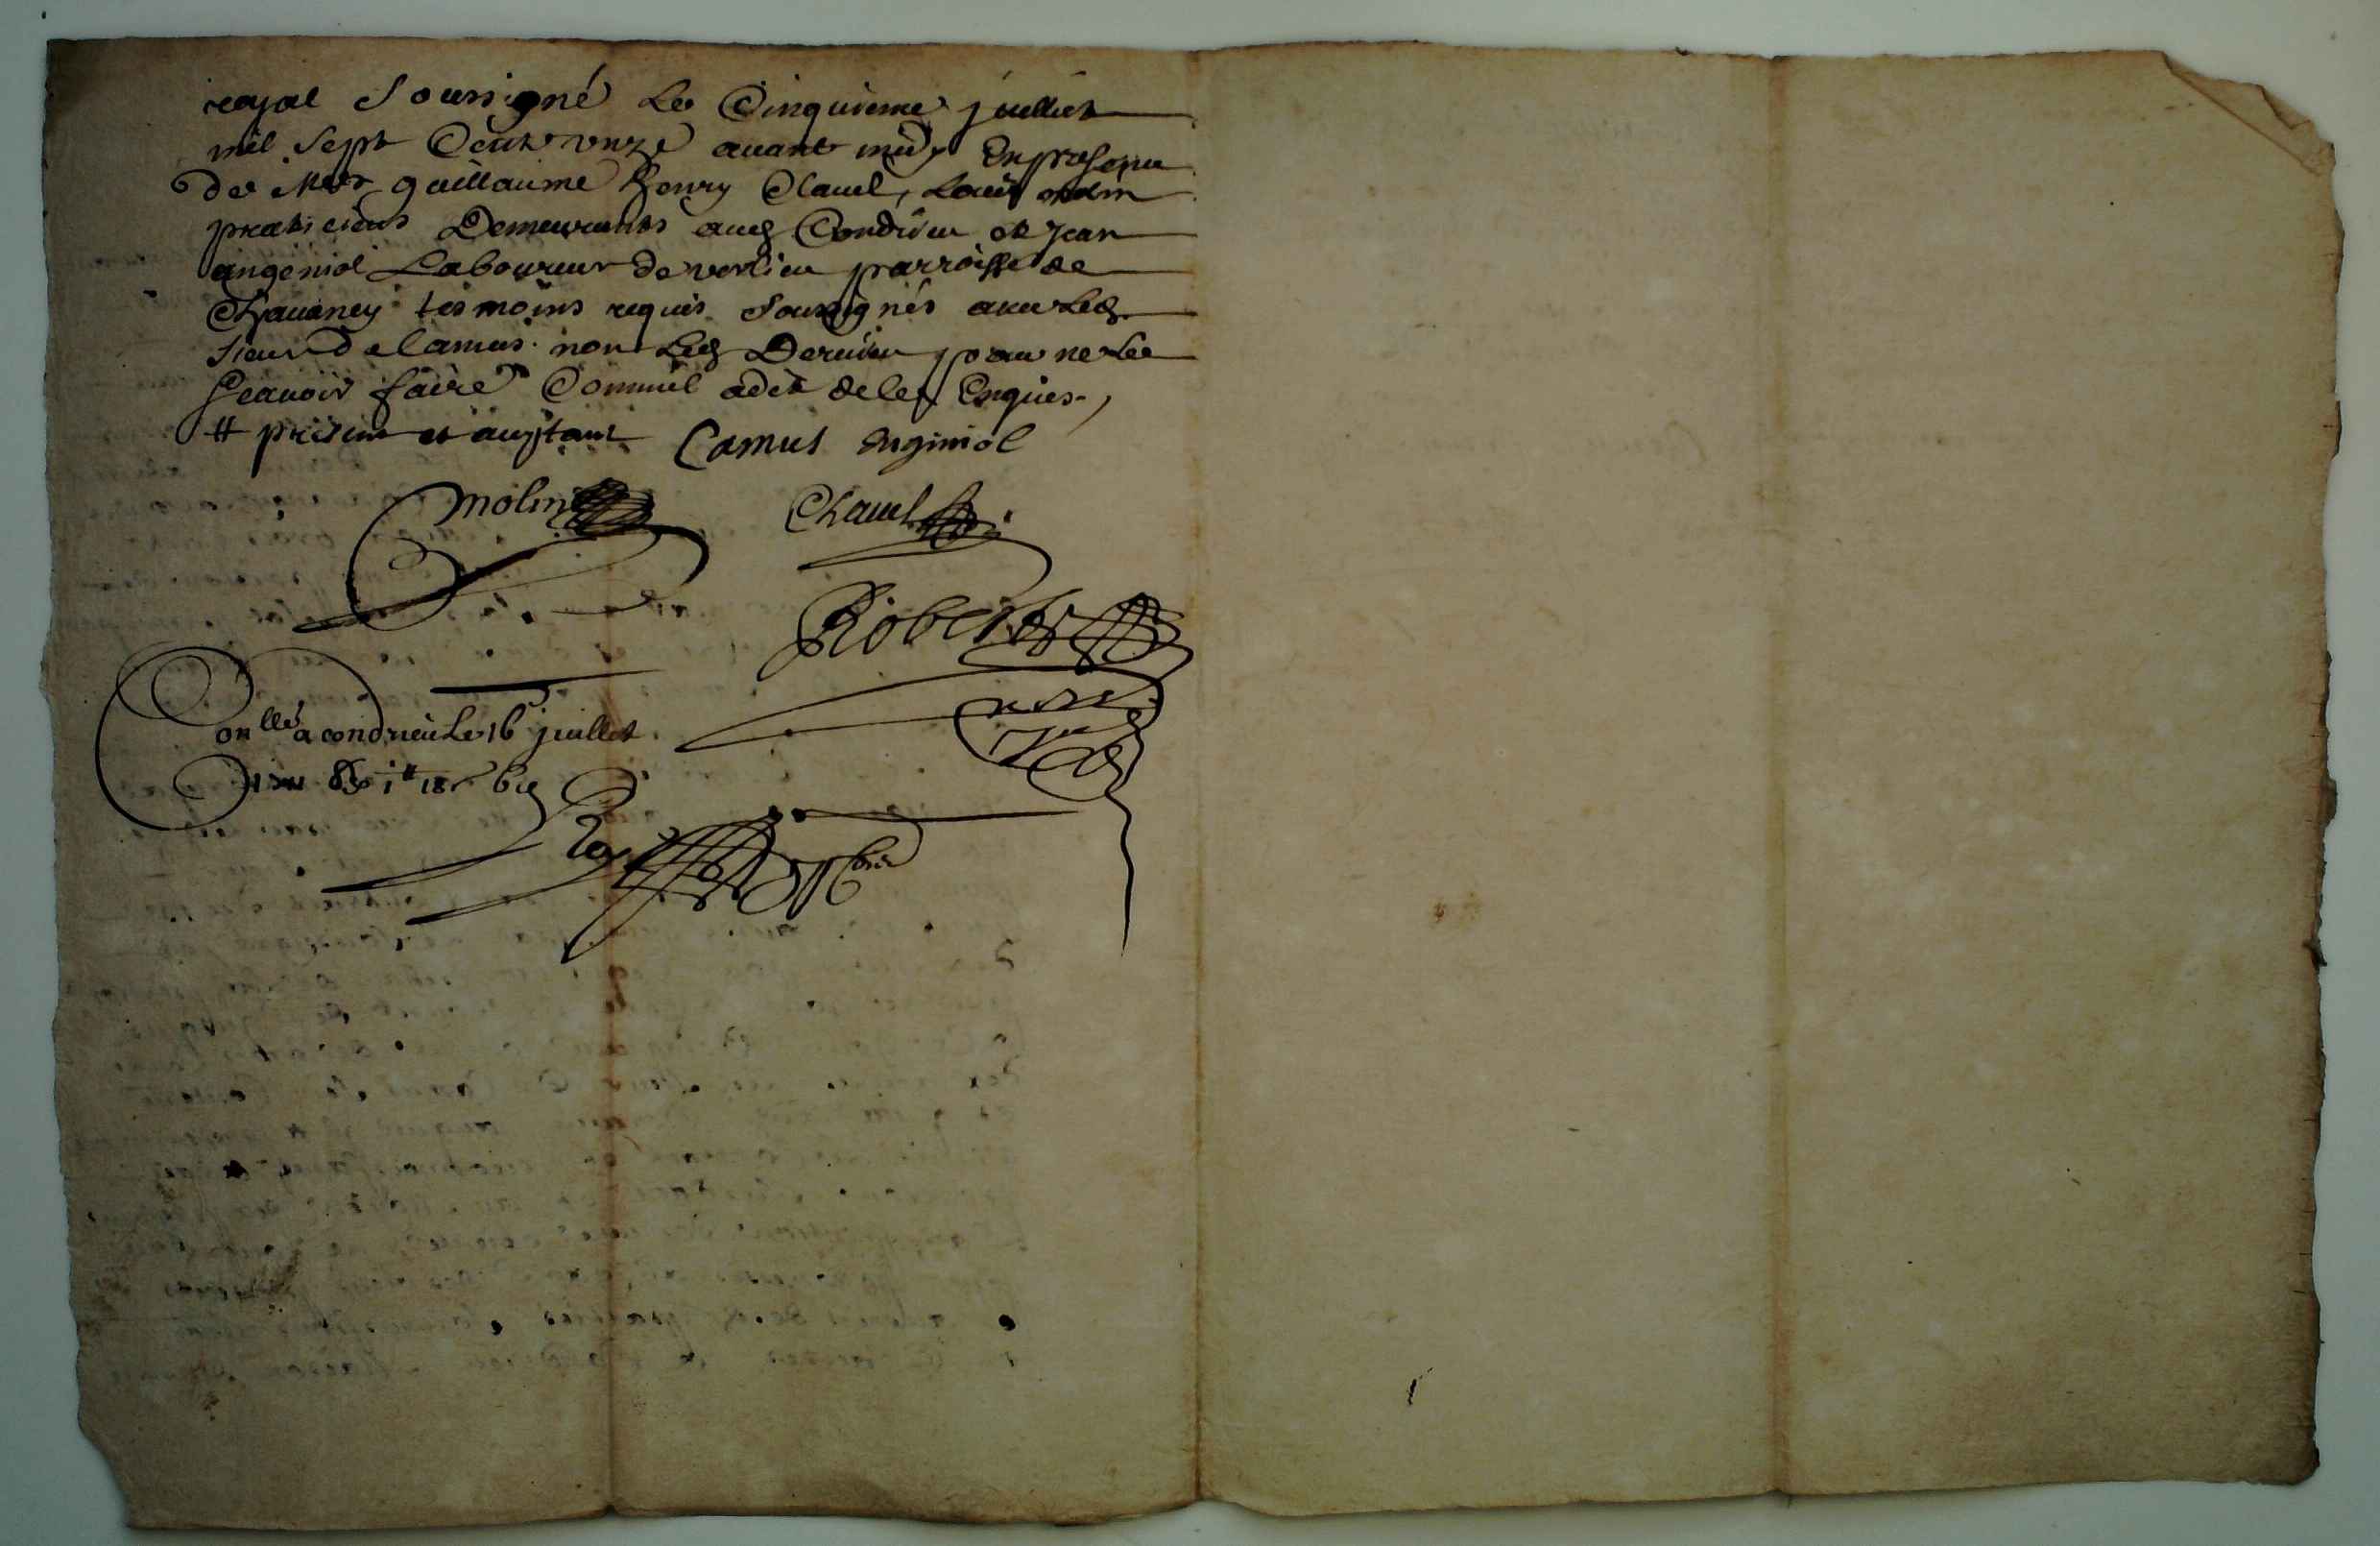 royal soussigné le Cinquieme juillet
mil sept Cent unze avant midy En presence
de Mes guillaume henry Clauel, Louis
praticiens Demeurants aud Condrieu et Jean
angeniol Laboureur de verlieu parroisse de
Chauaney tesmoins requis soussignés avec led
sieur delamus non led Dernier pour ne le
sçauoir faire Comme il a dit de ce Enquis
# present et
Camus Enginiol
molin
Chauel
Robert
no re
Con llé a condrieu le 16 juillet
1711
Roy